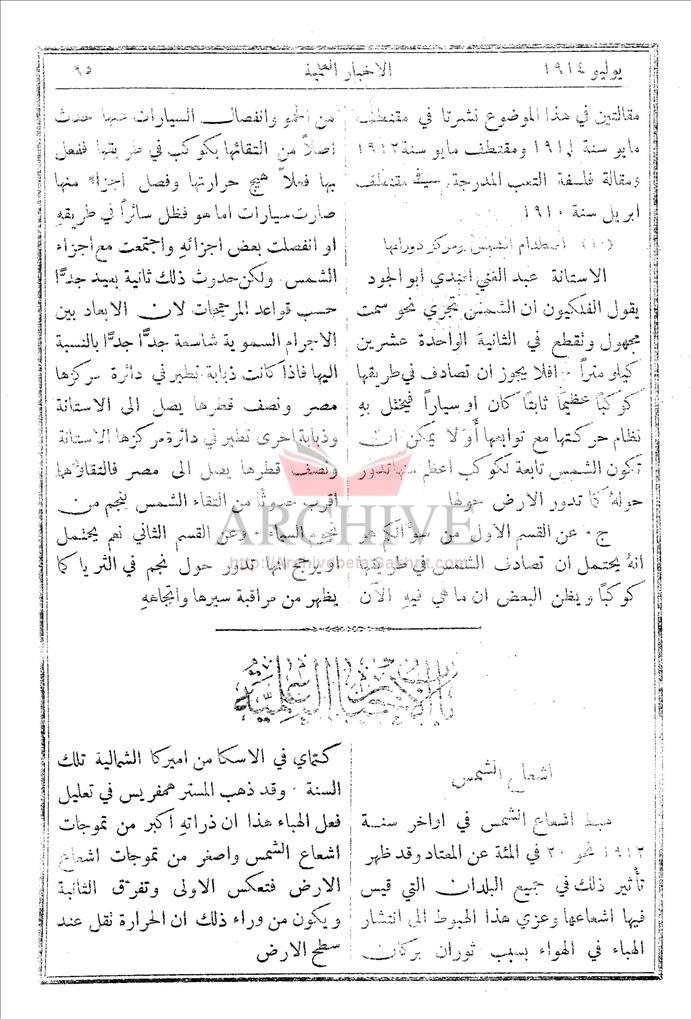 يوليو ١٩١٤
الاخبار العلمية
٩٥
مقالتين في هذا الموضوع نشرتا في مقتطف
مايو سنة ١٩١١ ومقتطف مايو سنة ١٩١٢
ومقالة فلسفة التعب المدرجة في مقتطف
ابريل سنة ١٩١٠
(١٠) اصطدام الشمس ومركز دورانها
الاستانة عبد الغني افندي ابو الجود
يقول الفلكيون ان الشمس تجري نحو سمت
مجهول وتقطع في الثانية الواحدة عشرين
كيلومتراً. افلا يجوز ان تصادف في طريقها
كوكباً عظيماً ثابتاً كان او سياراً فيختل بهِ
نظام حركتها مع توابعها أَوَ لا يمكن ان
تكون الشمس تابعة لكوكب اعظم منها تدور
حولهُ كما تدور الارض حولها
ج. عن القسم الاول من سؤالكم هو
انهُ يحتمل ان تصادف الشمس في طريقها
كوكباً ويظن البعض ان ما هي فيهِ الآن
من الحمو وانفصال السيارات عنها حدث
اصلاً من التقائها بكوكب في طريقها ففعل
بها فعلاً هيج حرارتها وفصل اجزاءً منها
صارت سيارات اما هو فظل سائراً في طريقهِ
او انفصلت بعض اجزائهِ واجتمعت مع اجزاء
الشمس. ولكن حدوث ذلك ثانية بعيد جدًّا
حسب قواعد المرجحات لان الابعاد بين
الاجرام السموية شاسعة جدًّا جدًّا بالنسبة
اليها فاذا كانت ذبابة تطير في دائرة مركزها
مصر ونصف قطرها يصل الى الاستانة
وذبابة اخرى تطير في دائرة مركزها الاستانة
ونصف قطرها يصل الى مصر فالتقاؤهما
اقرب حدوثاً من التقاء الشمس بنجم من
نجوم السماء. وعن القسم الثاني نعم يحتمل
او يرجح انها تدور حول نجم في الثريا كما
يظهر من مراقبة سيرها واتجاههِ
ARCHIVE
http://Archivebeta.Sakhrit.com
باب الاخبار العلمية
اشعاع الشمس
هبط اشعاع الشمس في اواخر سنة
١٩١٢ نحو ٢٠ في المئة عن المعتاد وقد ظهر
تأثير ذلك في جميع البلدان التي قيس
فيها اشعاعها وعزي هذا الهبوط الى انتشار
الهباء في الهواء بسبب ثوران بركان
كتماي في الاسكا من اميركا الشمالية تلك
السنة. وقد ذهب المستر همفريس في تعليل
فعل الهباء هذا ان ذراتهِ اكبر من تموجات
اشعاع الشمس واصغر من تموجات اشعاع
الارض فتعكس الاولى وتفرّق الثانية
ويكون من وراء ذلك ان الحرارة تقل عند
سطح الارض